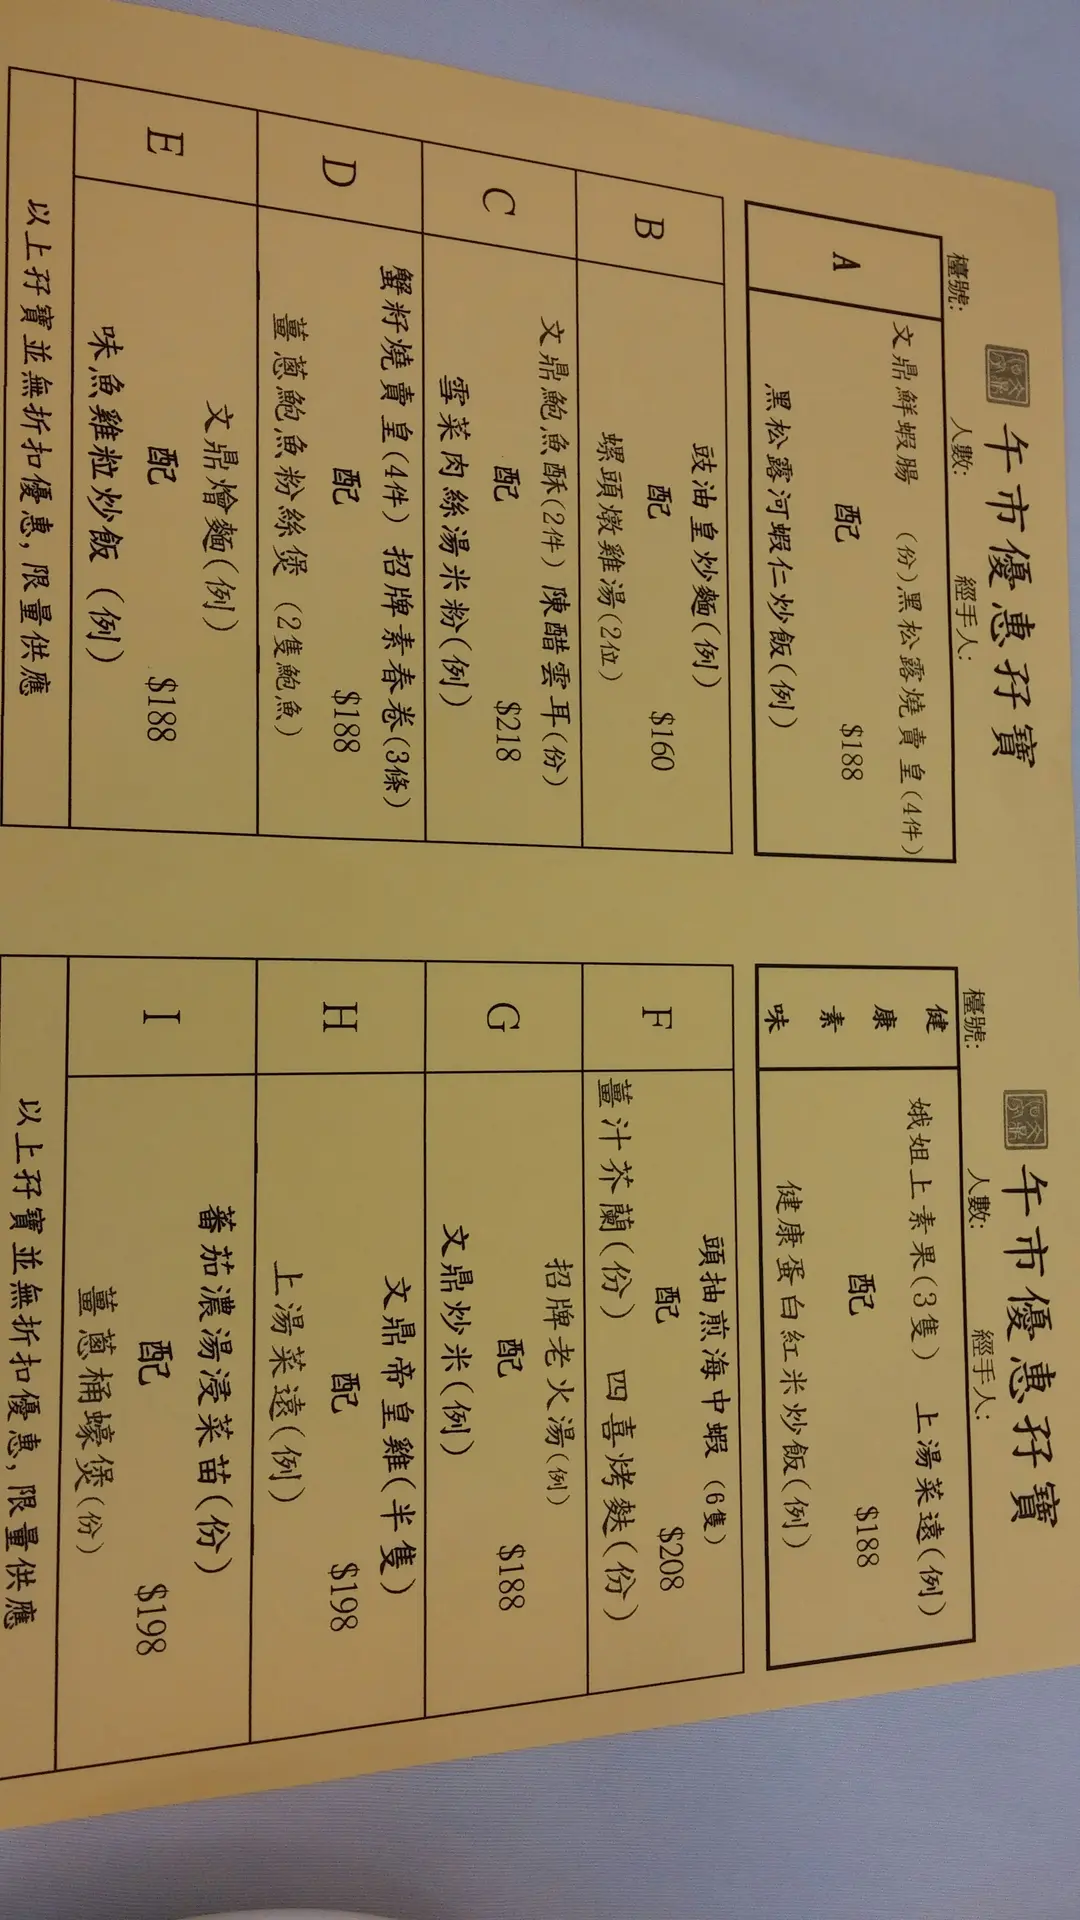 午市優惠孖寶
檯號: 人數: 經手人:
A
文鼎鮮蝦腸 (份)黑松露燒賣皇(4件)
配 $188
黑松露河蝦仁炒飯(例)
B
豉油皇炒麵(例)
配 $160
螺頭燉雞湯(2位)
C
文鼎鮑魚酥(2件) 陳醋雲耳(份)
配 $218
雪菜肉絲湯米粉(例)
D
蟹籽燒賣皇(4件) 招牌素春卷(3條)
配 $188
薑蔥鮑魚粉絲煲 (2隻鮑魚)
E
文鼎燴麵(例)
配 $188
味魚雞粒炒飯 (例)
以上孖寶並無折扣優惠,限量供應
午市優惠孖寶
檯號: 人數: 經手人:
健康素味
娥姐上素果(3隻) 上湯菜遠(例)
配 $188
健康蛋白紅米炒飯(例)
F
頭抽煎海中蝦 (6隻)
配 $208
薑汁芥蘭(份) 四喜烤麩(份)
G
招牌老火湯(例)
配 $188
文鼎炒米(例)
H
文鼎帝皇雞(半隻)
配 $198
上湯菜遠(例)
I
蕃茄濃湯浸菜苗(份)
配 $198
薑蔥桶蠔煲(份)
以上孖寶並無折扣優惠,限量供應